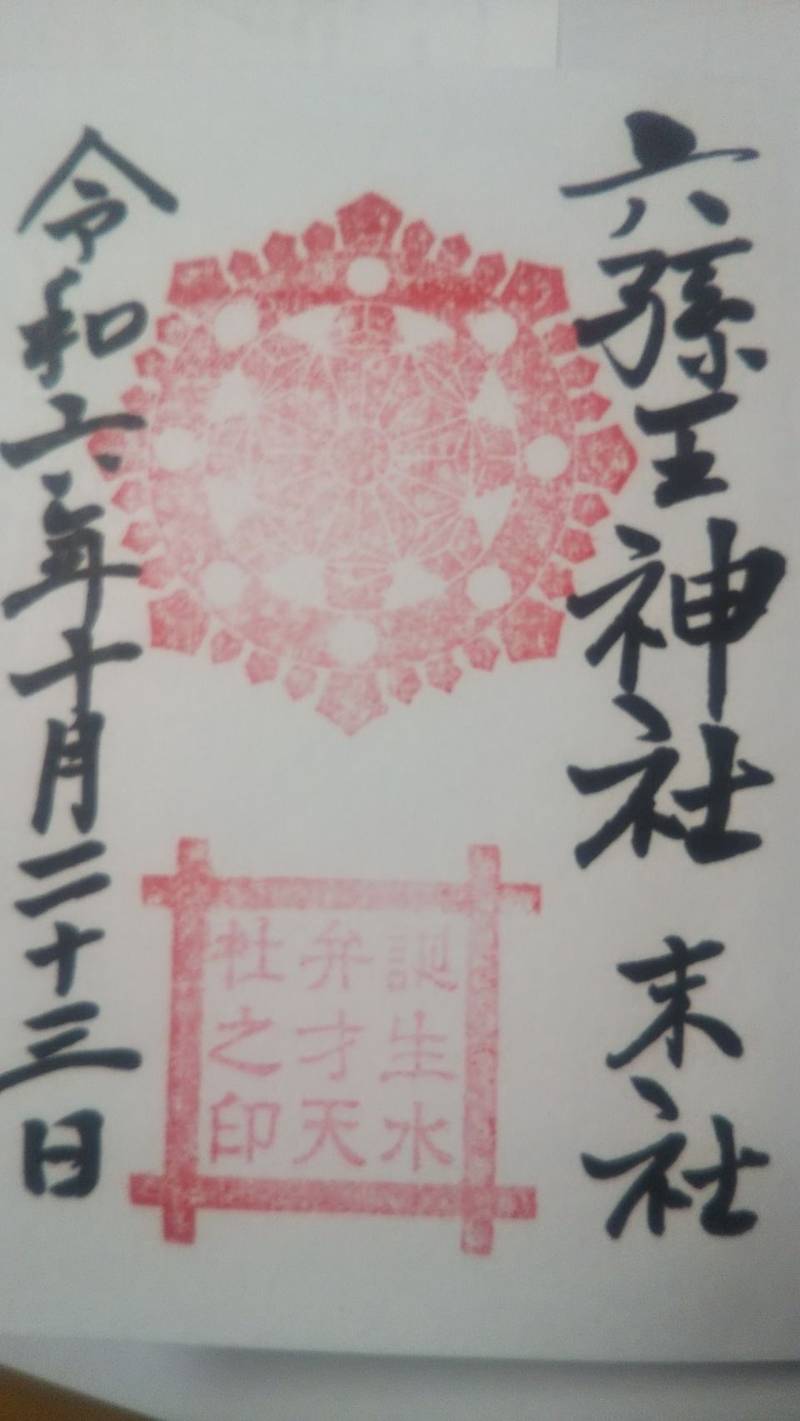 六孫王神社 末社
誕生水
弁才天
社之印
令和六年十月二十三日